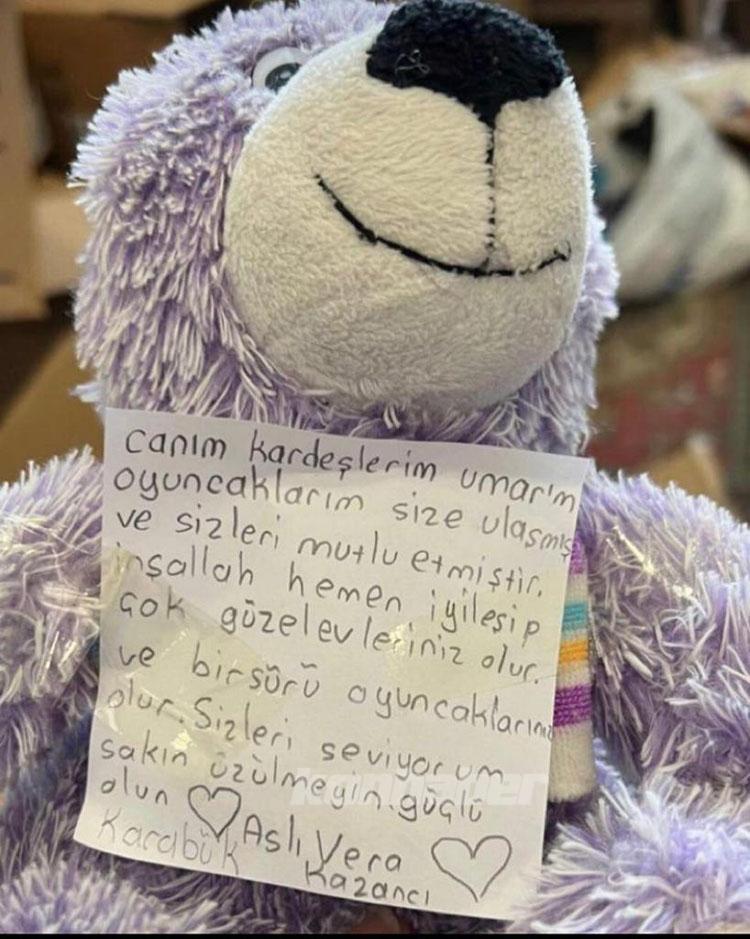 canım kardeşlerim umarım
oyuncaklarım size ulaşmış
ve sizleri mutlu etmiştir.
inşallah hemen iyileşip
çok güzel evleriniz olur.
ve birsürü oyuncaklarınız
olur. Sizleri seviyorum
sakın üzülmeyin. güçlü
olun ♡ Aslı Vera ♡
Karabük Kazancı